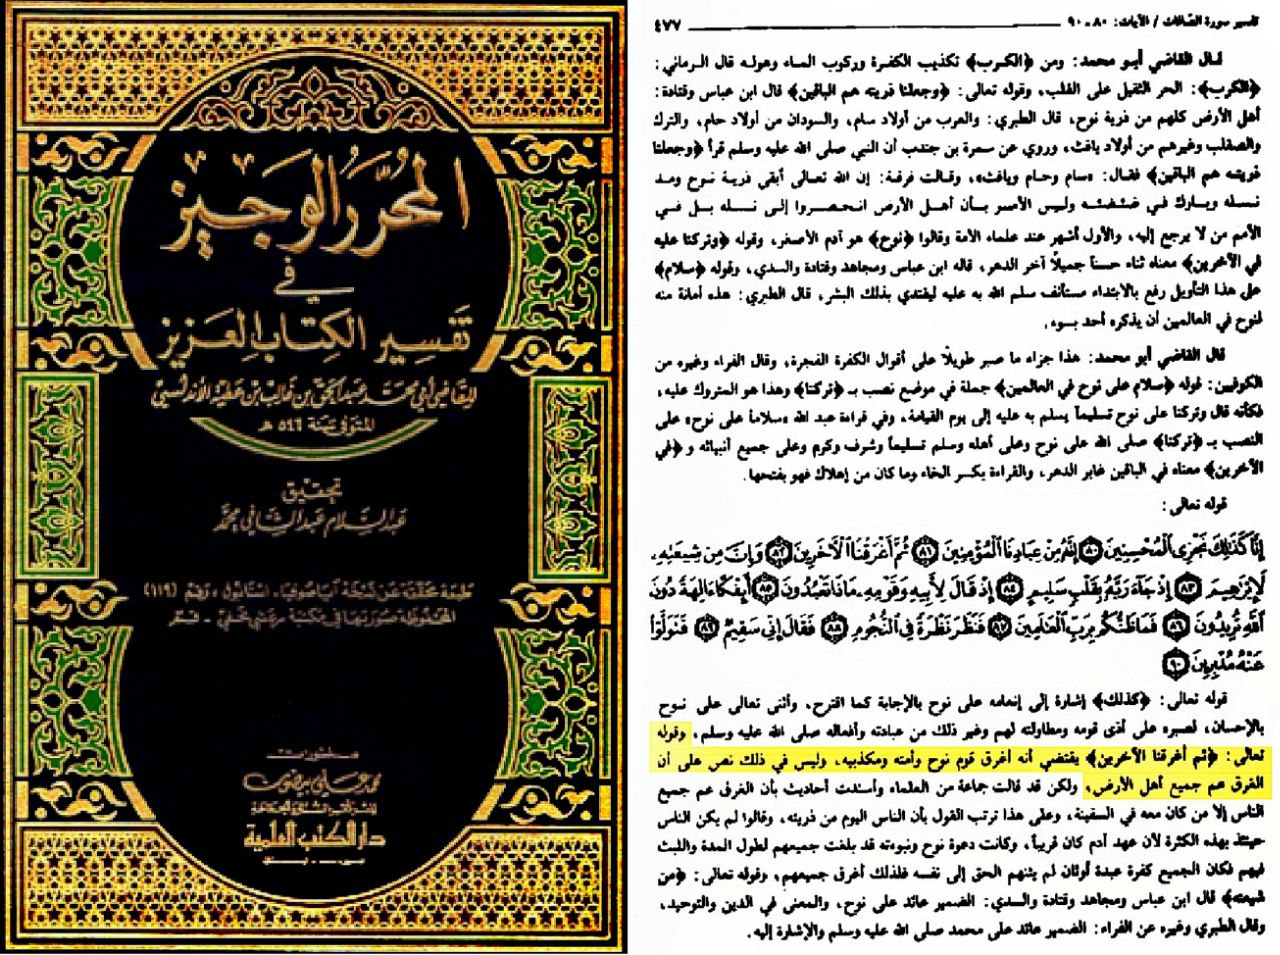 المحرر الوجيز
في
تفسير الكتاب العزيز
للقاضي أبي محمد عبد الحق بن غالب بن عطية الأندلسي
المتوفى سنة ٥٤٦ هـ
تحقيق
عبد السلام عبد الشافي محمد
طبعة محققة عن نسخة آيا صوفيا - استانبول، رقم (١١٩)
المحفوظة صورتها في مكتبة مرعشي نجفي - قم
منشورات
محمد علي بيضون
دار الكتب العلمية
تفسير سورة الصافات / الآيات: ٨٠ ـ ٩٠
٤٧٧
قال القاضي أبو محمد: ومن ﴿الكرب﴾ تكذيب الكفرة وركوب الماء وهوله قال الرماني:
﴿الكرب﴾: الحر الثقيل على القلب، وقوله تعالى: ﴿وجعلنا ذريته هم الباقين﴾ قال ابن عباس وقتادة:
أهل الأرض كلهم من ذرية نوح، قال الطبري: والعرب من أولاد سام، والسودان من أولاد حام، والترك
والصقلب وغيرهم من أولاد يافث، وروي عن سمرة بن جندب أن النبي صلى الله عليه وسلم قرأ ﴿وجعلنا
ذريته هم الباقين﴾ فقال: «سام وحام ويافث»، وقالت فرقة: إن الله تعالى أبقى ذرية نوح ومد
نسله وبارك في ضئضئه وليس الأمر بأن أهل الأرض انحصروا إلى نسله بل في
الأمم من لا يرجع إليه، والأول أشهر عند علماء الأمة وقالوا ﴿نوح﴾ هو آدم الأصغر، وقوله ﴿وتركنا عليه
في الآخرين﴾ معناه ثناء حسناً جميلاً آخر الدهر، قاله ابن عباس ومجاهد وقتادة والسدي، وقوله ﴿سلام﴾
على هذا التأويل رفع بالابتداء مستأنف سلم الله به عليه ليقتدي بذلك البشر، قال الطبري: هذه أمانة منه
لنوح في العالمين أن يذكره أحد بسوء.
قال القاضي أبو محمد: هذا جزاء ما صبر طويلاً على أقوال الكفرة الفجرة، وقال الفراء وغيره من
الكوفيين: قوله ﴿سلام على نوح في العالمين﴾ جملة في موضع نصب بـ ﴿تركنا﴾ وهذا هو المتروك عليه،
فكأنه قال وتركنا على نوح تسليماً يسلم به عليه إلى يوم القيامة، وفي قراءة عبد الله «سلاماً على نوح» على
النصب بـ ﴿تركنا﴾ صلى الله على نوح وعلى أهله وسلم تسليماً وشرف وكرم وعلى جميع أنبيائه و﴿في
الآخرين﴾ معناه في الباقين غابر الدهر، والقراءة بكسر الخاء وما كان من إهلاك فهو بفتحها.
قوله تعالى:
إِنَّا كَذَٰلِكَ نَجْزِي الْمُحْسِنِينَ ﴿٨٠﴾ إِنَّهُ مِنْ عِبَادِنَا الْمُؤْمِنِينَ ﴿٨١﴾ ثُمَّ أَغْرَقْنَا الْآخَرِينَ ﴿٨٢﴾ وَإِنَّ مِن شِيعَتِهِ
لَإِبْرَاهِيمَ ﴿٨٣﴾ إِذْ جَاءَ رَبَّهُ بِقَلْبٍ سَلِيمٍ ﴿٨٤﴾ إِذْ قَالَ لِأَبِيهِ وَقَوْمِهِ مَاذَا تَعْبُدُونَ ﴿٨٥﴾ أَئِفْكًا آلِهَةً دُونَ
اللَّهِ تُرِيدُونَ ﴿٨٦﴾ فَمَا ظَنُّكُم بِرَبِّ الْعَالَمِينَ ﴿٨٧﴾ فَنَظَرَ نَظْرَةً فِي النُّجُومِ ﴿٨٨﴾ فَقَالَ إِنِّي سَقِيمٌ ﴿٨٩﴾ فَتَوَلَّوْا
عَنْهُ مُدْبِرِينَ ﴿٩٠﴾
قوله تعالى: ﴿كذلك﴾ إشارة إلى إنعامه على نوح بالإجابة كما اقترح، وأثنى تعالى على نوح
بالإحسان، لصبره على أذى قومه ومطاولته لهم وغير ذلك من عبادته وأفعاله صلى الله عليه وسلم، وقوله
تعالى: ﴿ثم أغرقنا الآخرين﴾ يقتضي أنه أغرق قوم نوح وأمته ومكذبيه، وليس في ذلك نص على أن
الغرق عم جميع أهل الأرض، ولكن قد قالت جماعة من العلماء وأسندت أحاديث بأن الغرق عم جميع
الناس إلا من كان معه في السفينة، وعلى هذا ترتب القول بأن الناس اليوم من ذريته، وقالوا لم يكن الناس
حينئذ بهذه الكثرة لأن عهد آدم كان قريباً، وكانت دعوة نوح ونبوته قد بلغت جميعهم لطول المدة واللبث
فيهم فكان الجميع كفرة عبدة أوثان لم يثنهم الحق إلى نفسه فلذلك أغرق جميعهم، وقوله تعالى: ﴿من
شيعته﴾ قال ابن عباس ومجاهد وقتادة والسدي: الضمير عائد على نوح، والمعنى في الدين والتوحيد،
وقال الطبري وغيره عن الفراء: الضمير عائد على محمد صلى الله عليه وسلم والإشارة إليه.